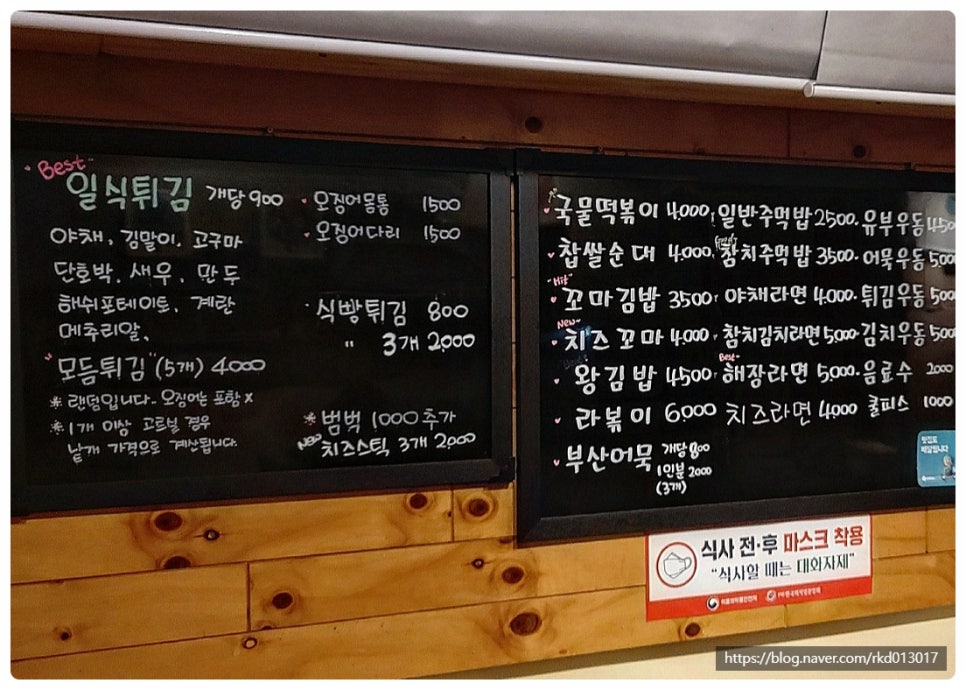 Best
일식튀김 개당 900
야채, 김말이, 고구마
단호박, 새우, 만두
해쉬포테이토, 계란
메추리알,
모듬튀김 (5개) 4000
※ 랜덤입니다. 오징어는 포함 X
※ 1개 이상 고르실 경우
낱개 가격으로 계산됩니다.
오징어몸통 1500
오징어다리 1500
식빵튀김 800
" 3개 2000
※범벅 1000 추가
New 치즈스틱 3개 2000
국물떡볶이 4000, 일반주먹밥 2500. 유부우동 450
찹쌀순대 4000. 참치주먹밥 3500. 어묵우동 500
Hit
꼬마김밥 3500. 야채라면 4000. 튀김우동 500
New
치즈꼬마 4000. 참치김치라면 5000. 김치우동 500
Best
왕김밥 4500. 해장라면 5000. 음료수 2000
라볶이 6000 치즈라면 4000 쿨피스 1000
부산어묵 개당 800
1인분 2000
(3개)
식사 전·후 마스크 착용
"식사할 때는 대화자제"
식품의약품안전처
https://blog.naver.com/rkd013017